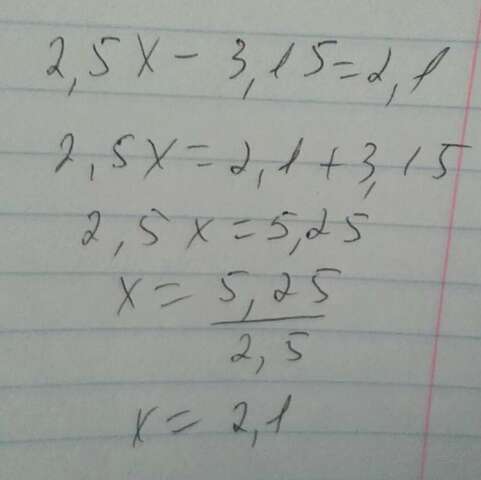 2,5x - 3,15 = 2,1
2,5x = 2,1 + 3,15
2,5x = 5,25
x = 5,25
2,5
x = 2,1